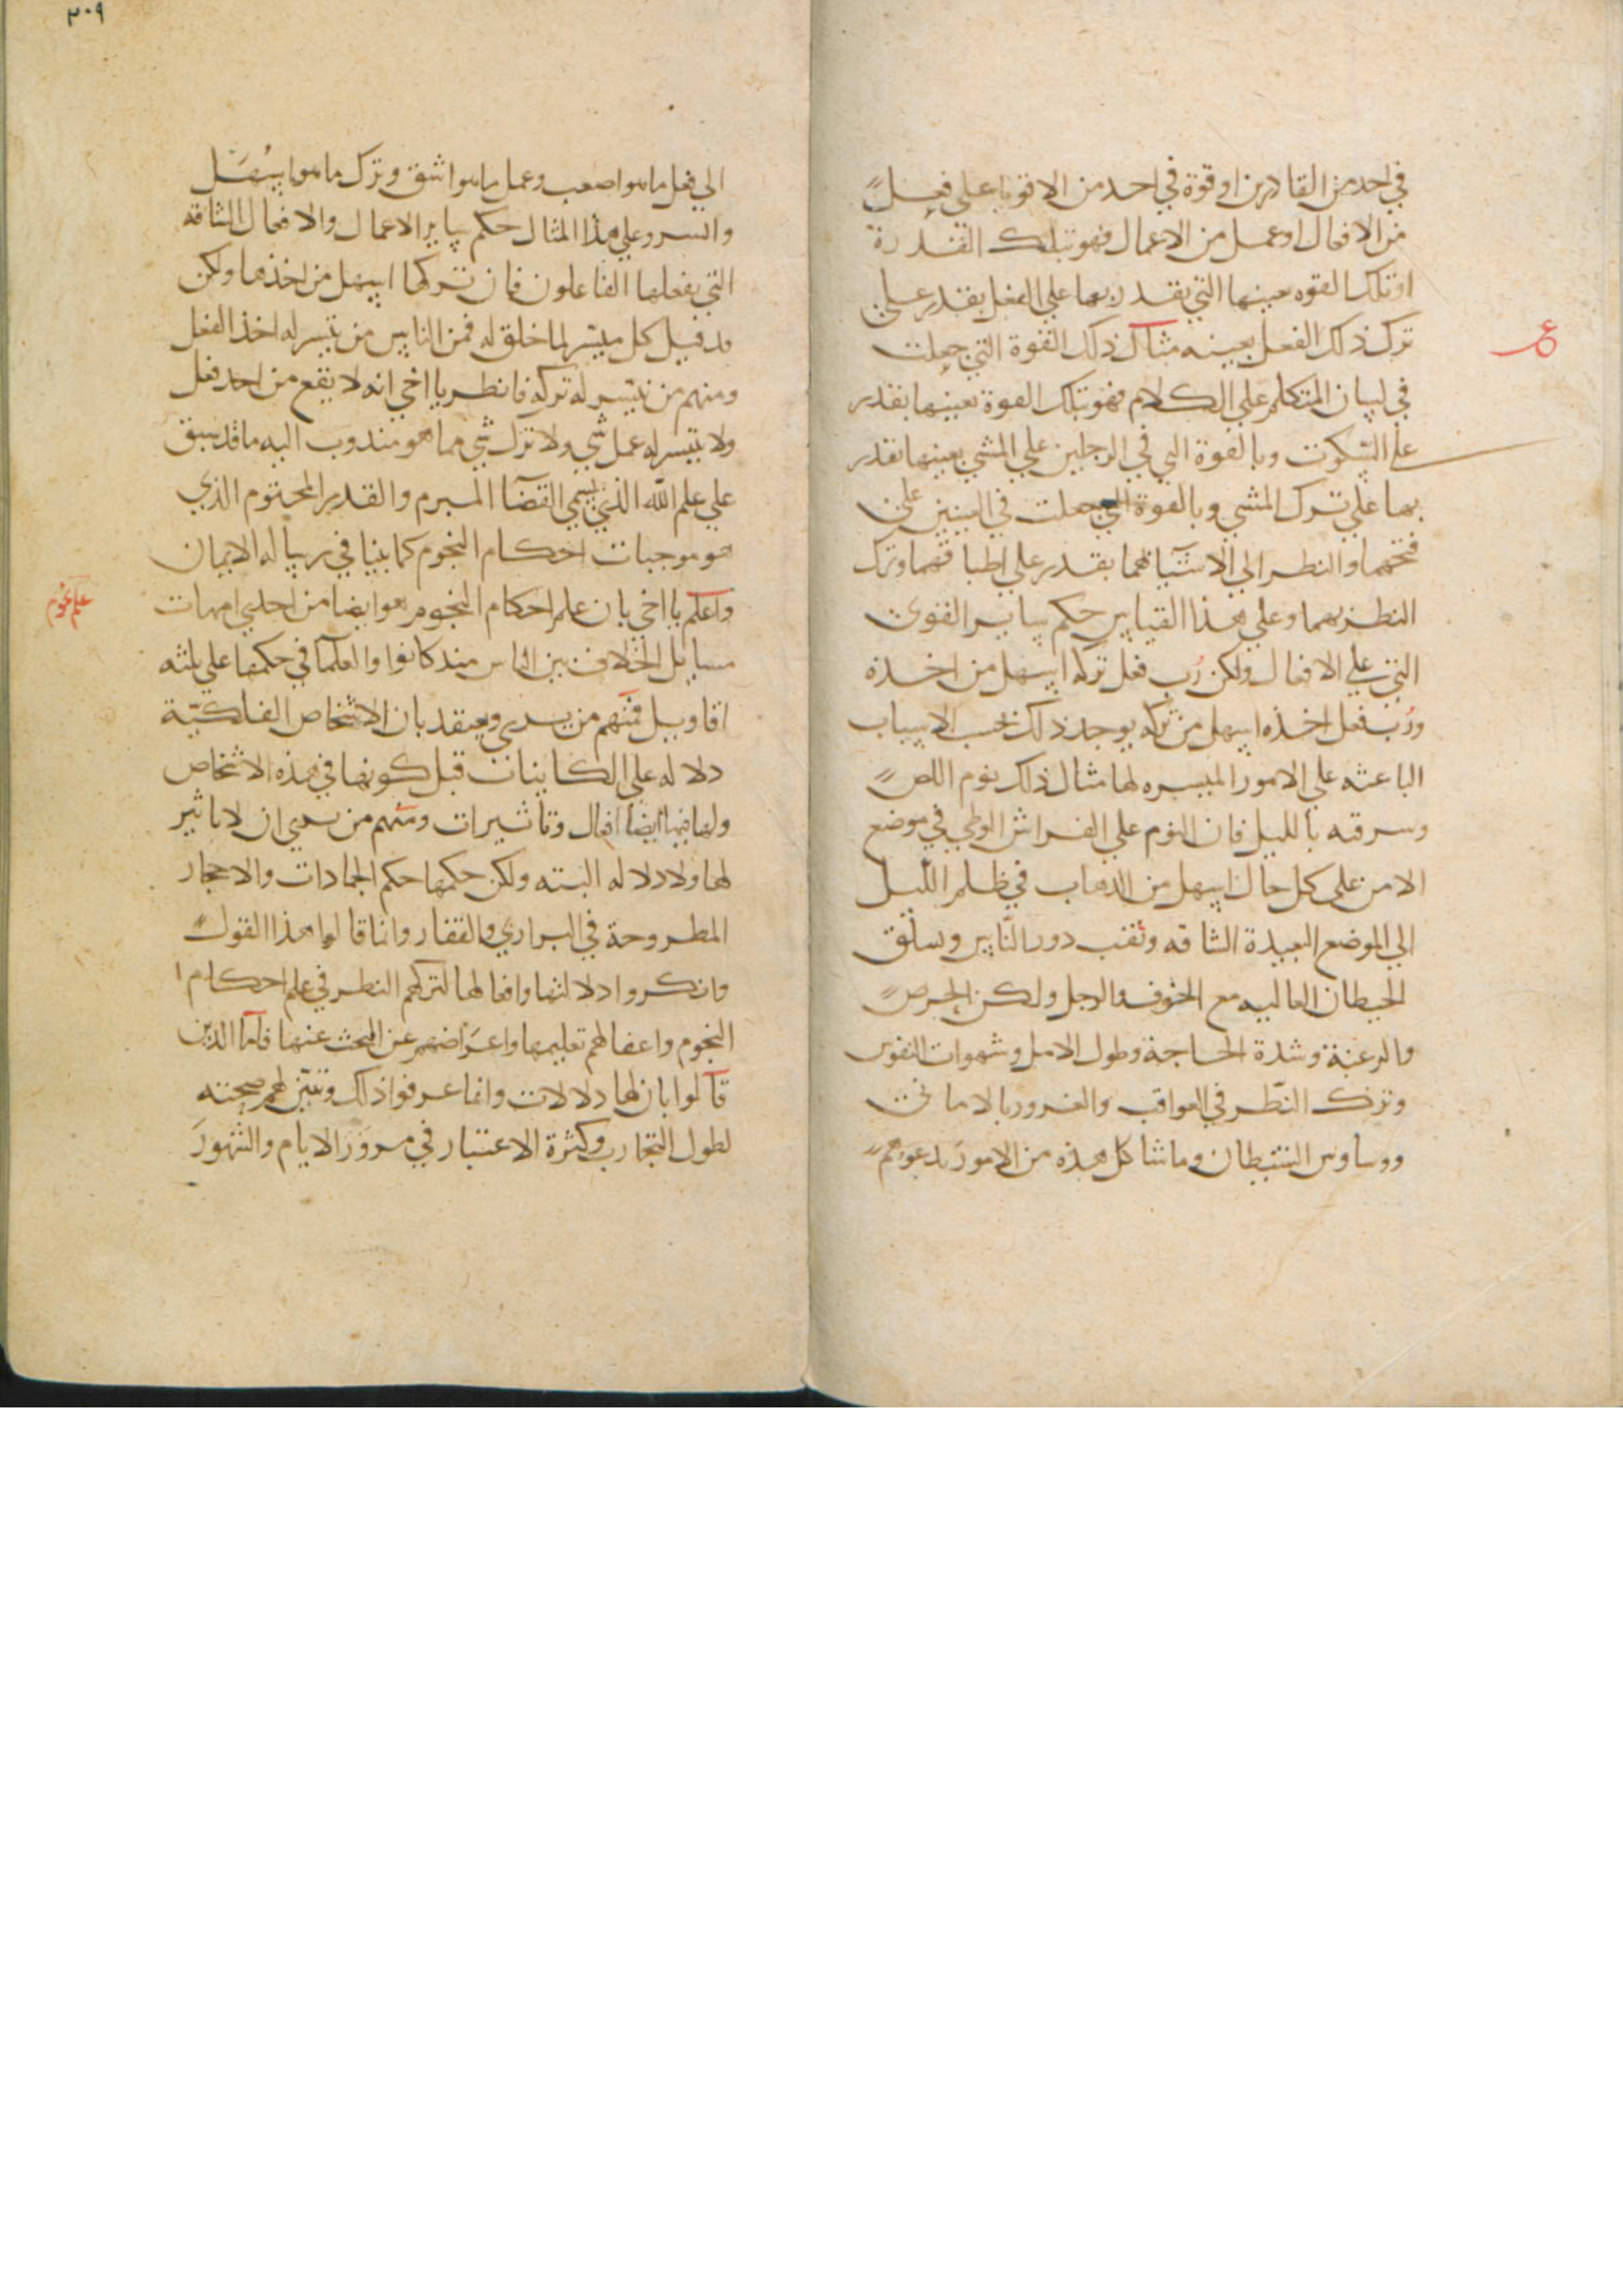 في احد من القادرين او قوة في احد من الاقويا علي فعل
من الافعال او عمل من الاعمال فهو بتلك القدرة
او تلك القوه بعينها التي يقدر بها علي الفعل يقدر علي
ترك ذلك الفعل بعينه مثال ذلك القوة التي جعلت
في لسان المتكلم علي الكلام فهو بتلك القوة بعينها يقدر
علي السكوت وبالقوة التي في الرجلين علي المشي بعينها يقدر
بها علي ترك المشي وبالقوة التي جعلت في العينين علي
فتحهما والنظر الي الاشيا بهما يقدر علي اطباقهما وترك
النظر بهما وعلي هذا القياس حكم ساير القوي
التي علي الافعال ولكن رُب فعل تركه اسهل من اخذه
ورُب فعل اخذه اسهل من تركه يوجد ذلك بحسب الاسباب
الباعثه علي الامور الميسره لها مثال ذلك نوم اللص
وسرقته بالليل فان النوم علي الفراش الوطي في موضع
الامن علي كل حال اسهل من الذهاب في ظلم الليل
الي الموضع البعيدة الشاقه ونقب دور الناس وتسلق
الحيطان العاليه مع الخوف والوجل ولكن الحرص
والرغبة وشدة الحاجة وطول الامل وشهوات النفوس
وترك النظر في العواقب والغرور بالاماني
ووساوس الشيطان وما شاكل هذه من الامور يدعوهم
٣٠٩
الي فعل ما هو اصعب وعمل ما هو اشق وترك ما هو اسهل
وايسر وعلي هذا المثال حكم ساير الاعمال والافعال الشاقه
التي يفعلها الفاعلون فان تركها اسهل من اخذها ولكن
قد قيل كل ميسر لما خلق له فمن الناس من تيسر له اخذ الفعل
ومنهم من تيسر له تركه فانظر يا اخي انه لا يقع من احد فعل
ولا يتيسر له عمل شي ولا ترك شي مما هو مندوب اليه ما قد سبق
علي علم الله الذي يسمي القضا المبرم والقدر المحتوم الذي
هو موجبات احكام النجوم كما بينا في رساله الايمان
واعلم يا اخي بان علم احكام النجوم هو ايضا من احدي امهات
علم نجوم
مسايل الخلاف بين الناس منذ كانوا والعلما في حكمها علي ثلثه
اقاويل فمنهم من يري ويعتقد بان الاشخاص الفلكية
دلاله علي الكاينات قبل كونها في هذه الاشخاص
ولها فيها ايضا افعال وتاثيرات ومنهم من يري ان لا تاثير
لها ولا دلاله البته ولكن حكمها حكم الجمادات والاحجار
المطروحة في البراري والقفار وانما قالوا هذا القول
وانكروا دلالتها وافعالها لتركهم النظر في علم احكام
النجوم واغفالهم تعليمها واعراضهم عن البحث عنها فاما الذين
قالوا بان لها دلالات وانما عرفوا ذلك وتبين لهم صحته
لطول التجارب وكثرة الاعتبار في مرور الايام والشهور